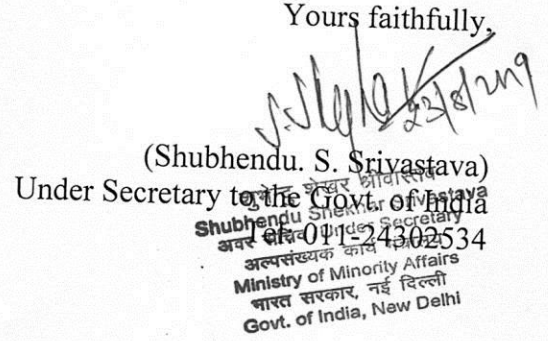 Yours faithfully,
23/8/2019
(Shubhendu. S. Srivastava)
Under Secretary to the Govt. of India
Tel: 011-24302534
शुभेन्दु शेखर श्रीवास्तव
Shubhendu Shekhar Srivastava
अवर सचिव Under Secretary
अल्पसंख्यक कार्य मंत्रालय
Ministry of Minority Affairs
भारत सरकार, नई दिल्ली
Govt. of India, New Delhi